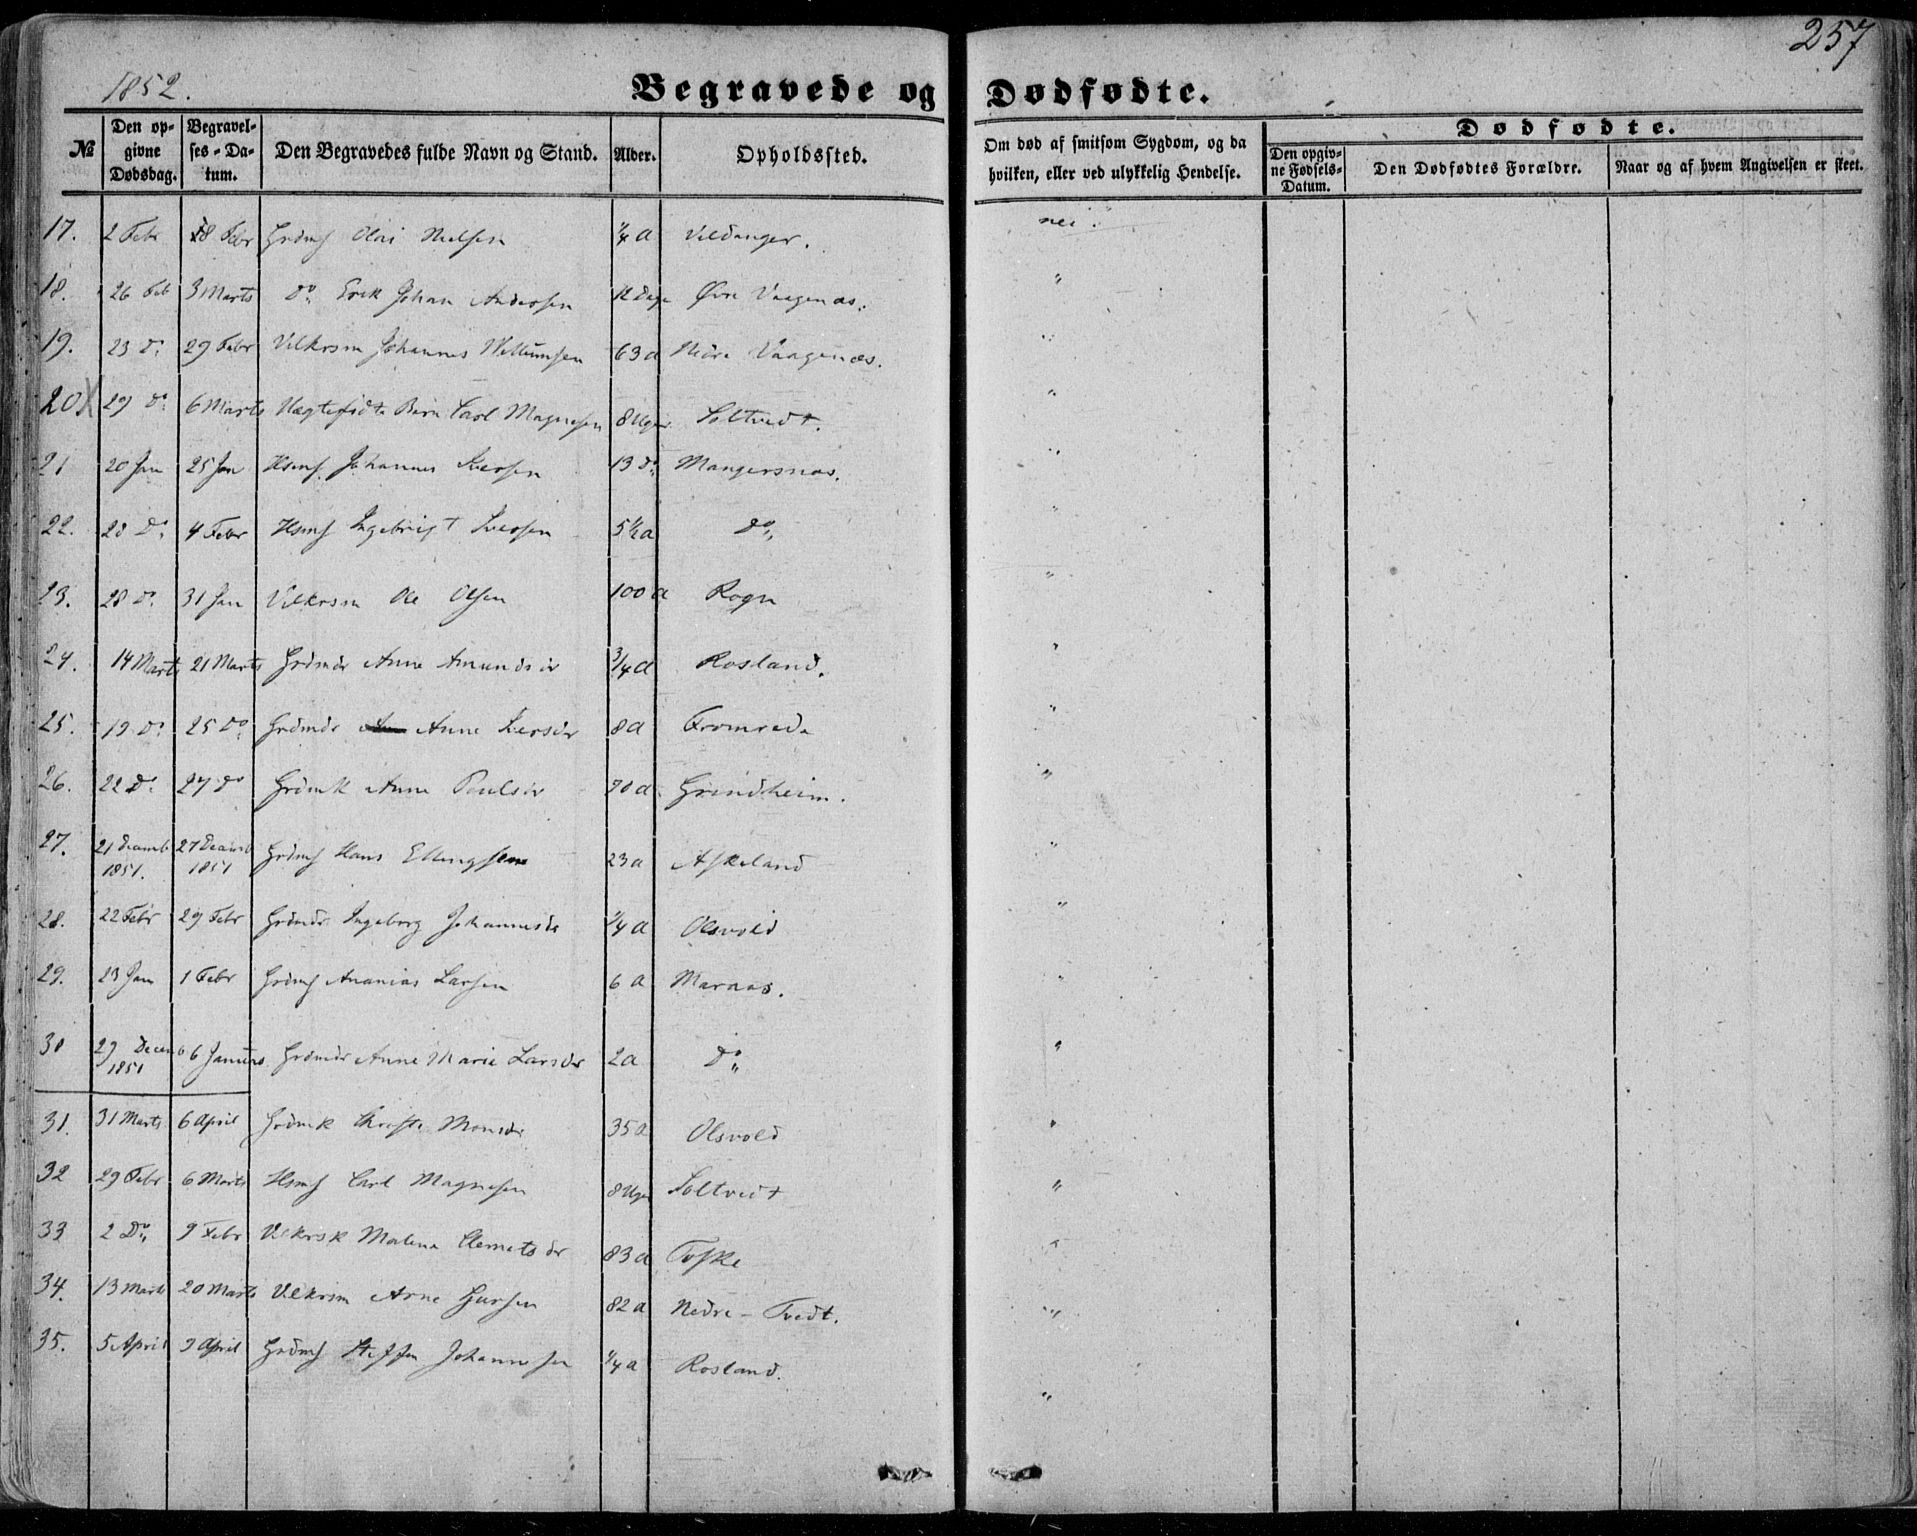 257
1852.
Begravede og Dødfødte.
№ Den opgivne Dødsdag. Begravelses-Datum. Den Begravedes fulde Navn og Stand. Alder. Opholdssted. Om død af smitsom Sygdom, og da hvilken, eller ved ulykkelig Hendelse. Dødfødte. Den opgivne Fødsels-Datum. Den Dødfødtes Forældre. Naar og af hvem Angivelsen er skeet.
17. 2 Febr 8 Febr Grdmf Olai Nielsen ¼ a Vildanger. nei.
18. 26 Feb 3 Marts Do Erik Johan Andersen 12 Dage Øvre Vaagenæs. "
19. 23 Do 29 Febr Vilkrsm Johannes Willumsen 63 a Nedre Vaagenæs. "
20 X 29 Do 6 Marts Uægtefødte Barn Carl Magnesen 8 Uger Soltvedt. "
21 20 Jan 25 Jan Hsmf Johannes Iversen 13 Do Mangersnæs. "
22. 28 Do 4 Febr Hsmf Ingebrigt Iversen 5½ a Do "
23. 28 Do 31 Jan Vilkrsm Ole Olsen 100 a Rogn "
24. 14 Marts 21 Marts Grdmdr Anne Amundsdr ¾ a Rosland. "
25. 19 Do 25 Do Grdmdr Anne Iversdr 8 a Fromreda "
26. 22 Do 27 Do Grdmk Anne Poulsdr 70 a Grindheim. "
27. 21 Decemb 1851. 27 Decemb 1851 Grdmf Hans Ellingsen 23 a Askeland "
28. 22 Febr 29 Febr Grdmdr Ingeborg Johannesdr ¼ a Olsvold "
29. 23 Jan 1 Febr Grdmf Ananias Larsen 6 a Marøas. "
30 29 Decemb 1851 6 Januar Grdmdr Anne Marie Larsdr 2 a Do "
31. 31 Marts 6 April Grdmk Christi Monsdr 35 a Olsvold "
32 29 Febr 6 Marts Hsmf Carl Magnesen 8 Uger Soltvedt "
33 2 Do 9 Febr Vilkrsk Malena Clemetsdr 83 a Toske "
34. 13 Marts 20 Marts Vilkrsm Arne Gursen 82 a Nedre-Tvedt. "
35. 5 April 9 April Grdmf Steffen Johannesen ¼ a Rosland. "